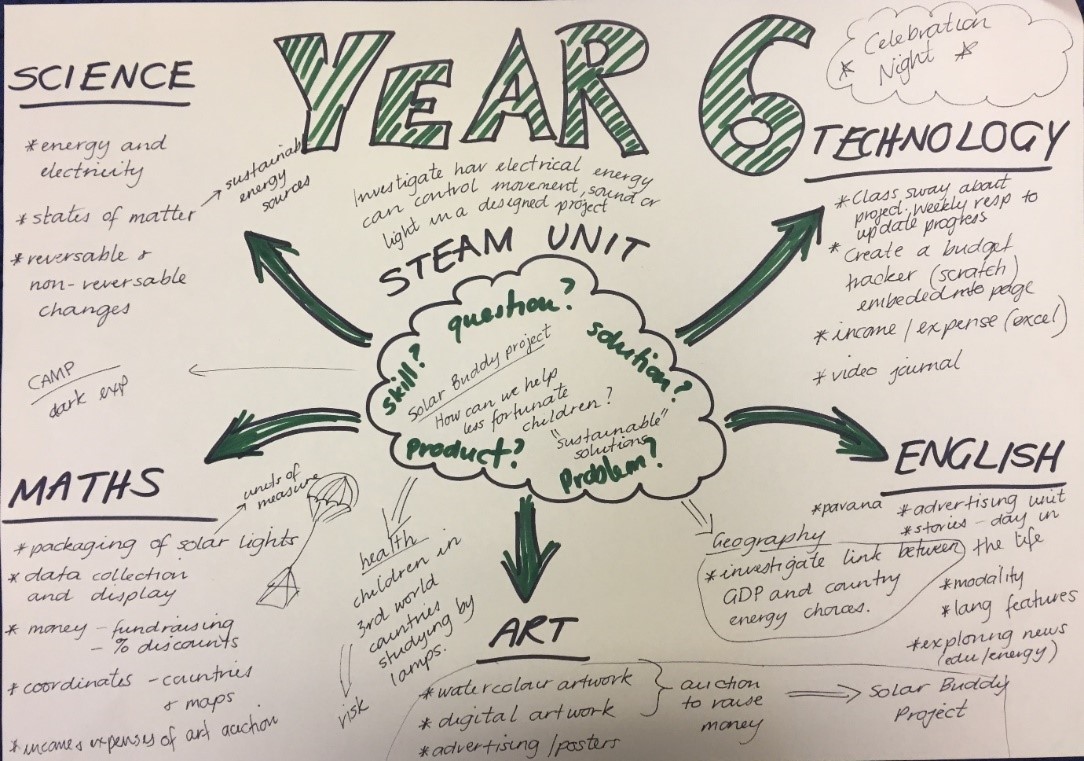 YEAR 6
Celebration
* Night *
Investigate how electrical energy
can control movement, sound or
light in a designed project
STEAM UNIT
question?
skill?
solution?
Solar Buddy project
How can we help
less fortunate
children?
"sustainable"
solutions
Product?
Problem?
SCIENCE
* energy and
electricity
* states of matter
→ sustainable
energy
sources
* reversable +
non-reversable
changes
CAMP
dark exp
TECHNOLOGY
* Class sway about
project. Weekly resp to
update progress
* Create a budget
tracker (scratch)
embeded into page
* income / expense (excel)
* video journal
MATHS
units of
measure
* packaging of solar lights
* data collection
and display
* money - fundraising
- % discounts
* coordinates - countries
+ maps
* income + expenses of art auction
health
children in
3rd world
countries
studying by
lamps.
risk
ART
* watercolour artwork
* digital artwork
* advertising / posters
auction
to raise
money
Solar Buddy
Project
Geography
* investigate link between
GDP and country
energy choices.
ENGLISH
* pavana
* advertising unit
* stories - day in
the life
* modality
* lang features
* exploring news
(edu/energy)